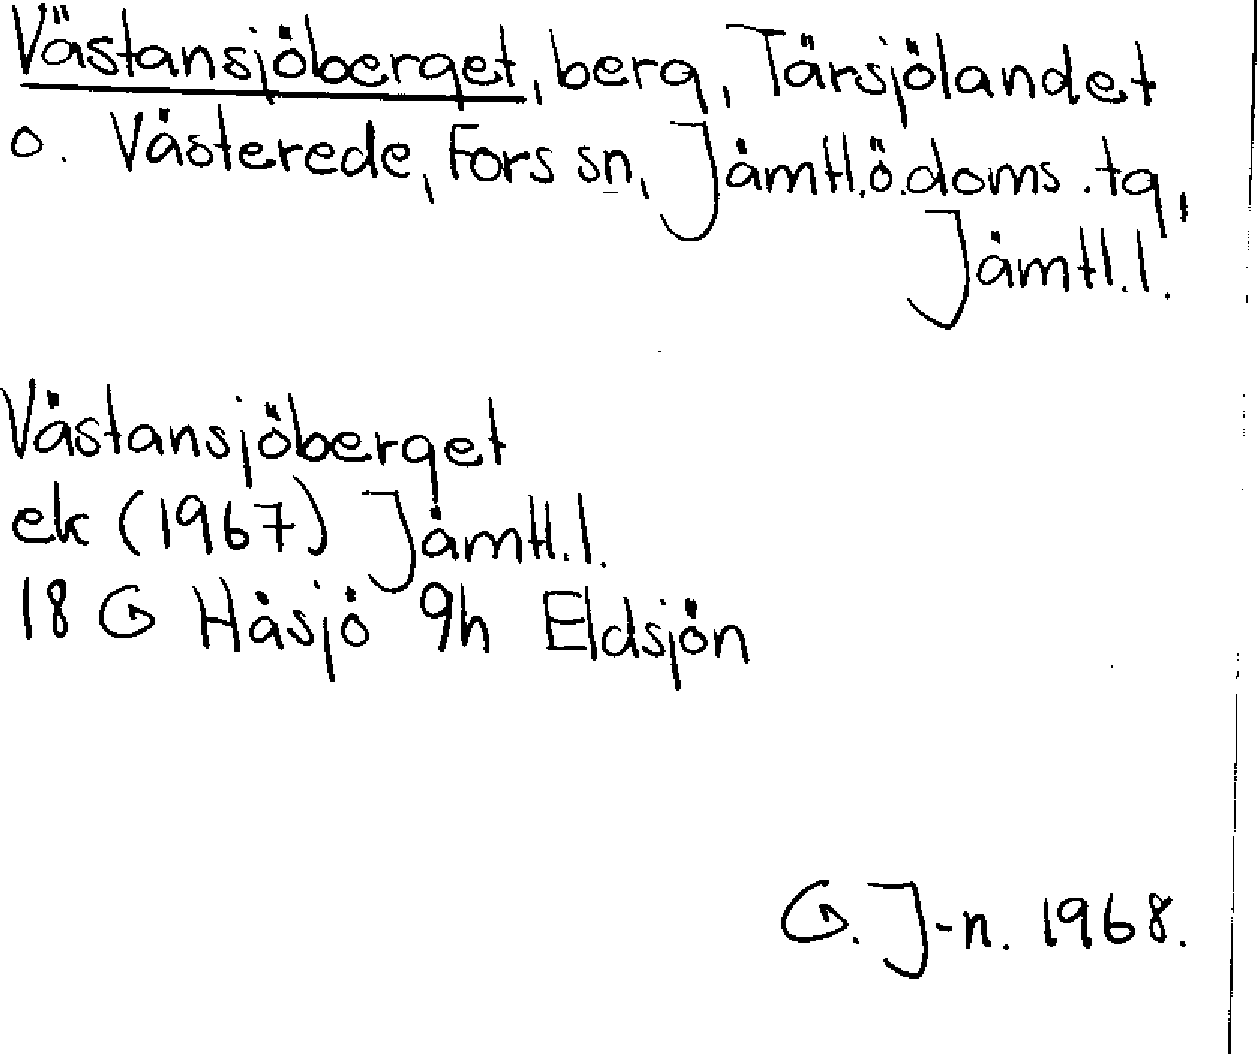 Västansjöberget, berg, Tärsjölandet
o. Västerede, Fors sn, Jämtl.ö.doms.tg,
Jämtl.l.
Västansjöberget
ek (1967) Jämtl.l.
18 G Håsjö 9h Eldsjön
G. J-n. 1968.